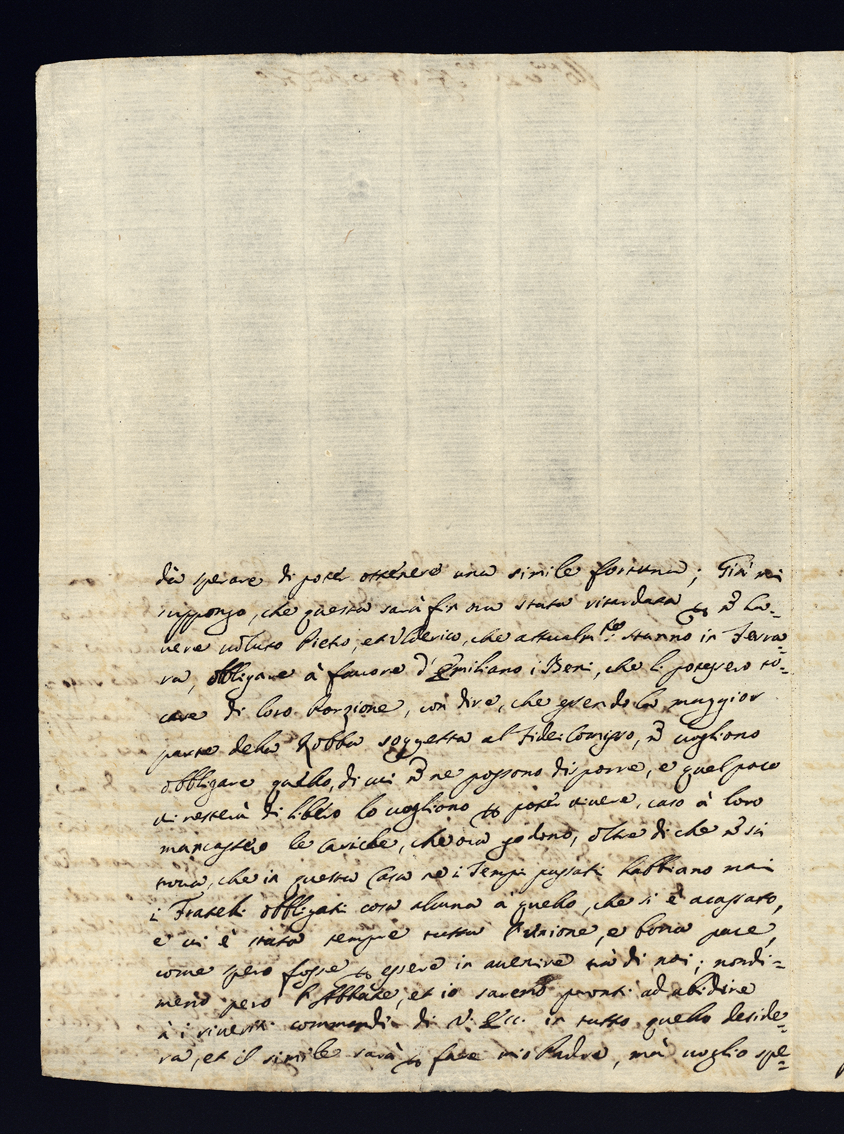 dà sperare di potér ottenere una simile fortuna; Già mi
suppongo, che questa sarà fin ora stata ritardata p nõ ha-
uere uoluto Pieto, et Vlderico, che attualm.te stanno in Ferra-
ra, obbligare à fauore d'Emiliano i Beni, che li potessero to-
care di loro Porzione, con dire, che essendo la maggior
parte della Robba soggetta al Fidei Comisso, nõ uogliono
obbligare quello, di cui nõ ne possono disporre, e quel poco
ui resterà di libéro lo uogliono p potér uiuere, caso à loro
mancasséro le cariche, che ora godono, oltre di che nõ si
troua, che in questa Casa ne i Tempi passati habbiano mai
i Frateli obbligati cosa alcuna à quello, che si è acasato,
e ui è stata sempre tutta l'unione, e bona pace,
come spero fosse p essere in auenire trà di noi; nondi-
meno pero l'Abbate, et io saremo pronti ad ubidire
à i riueriti commandi di V. Ecc. in tutto quello deside-
ra, et il simile sarà p fare mio Padre, mà uoglio spe-